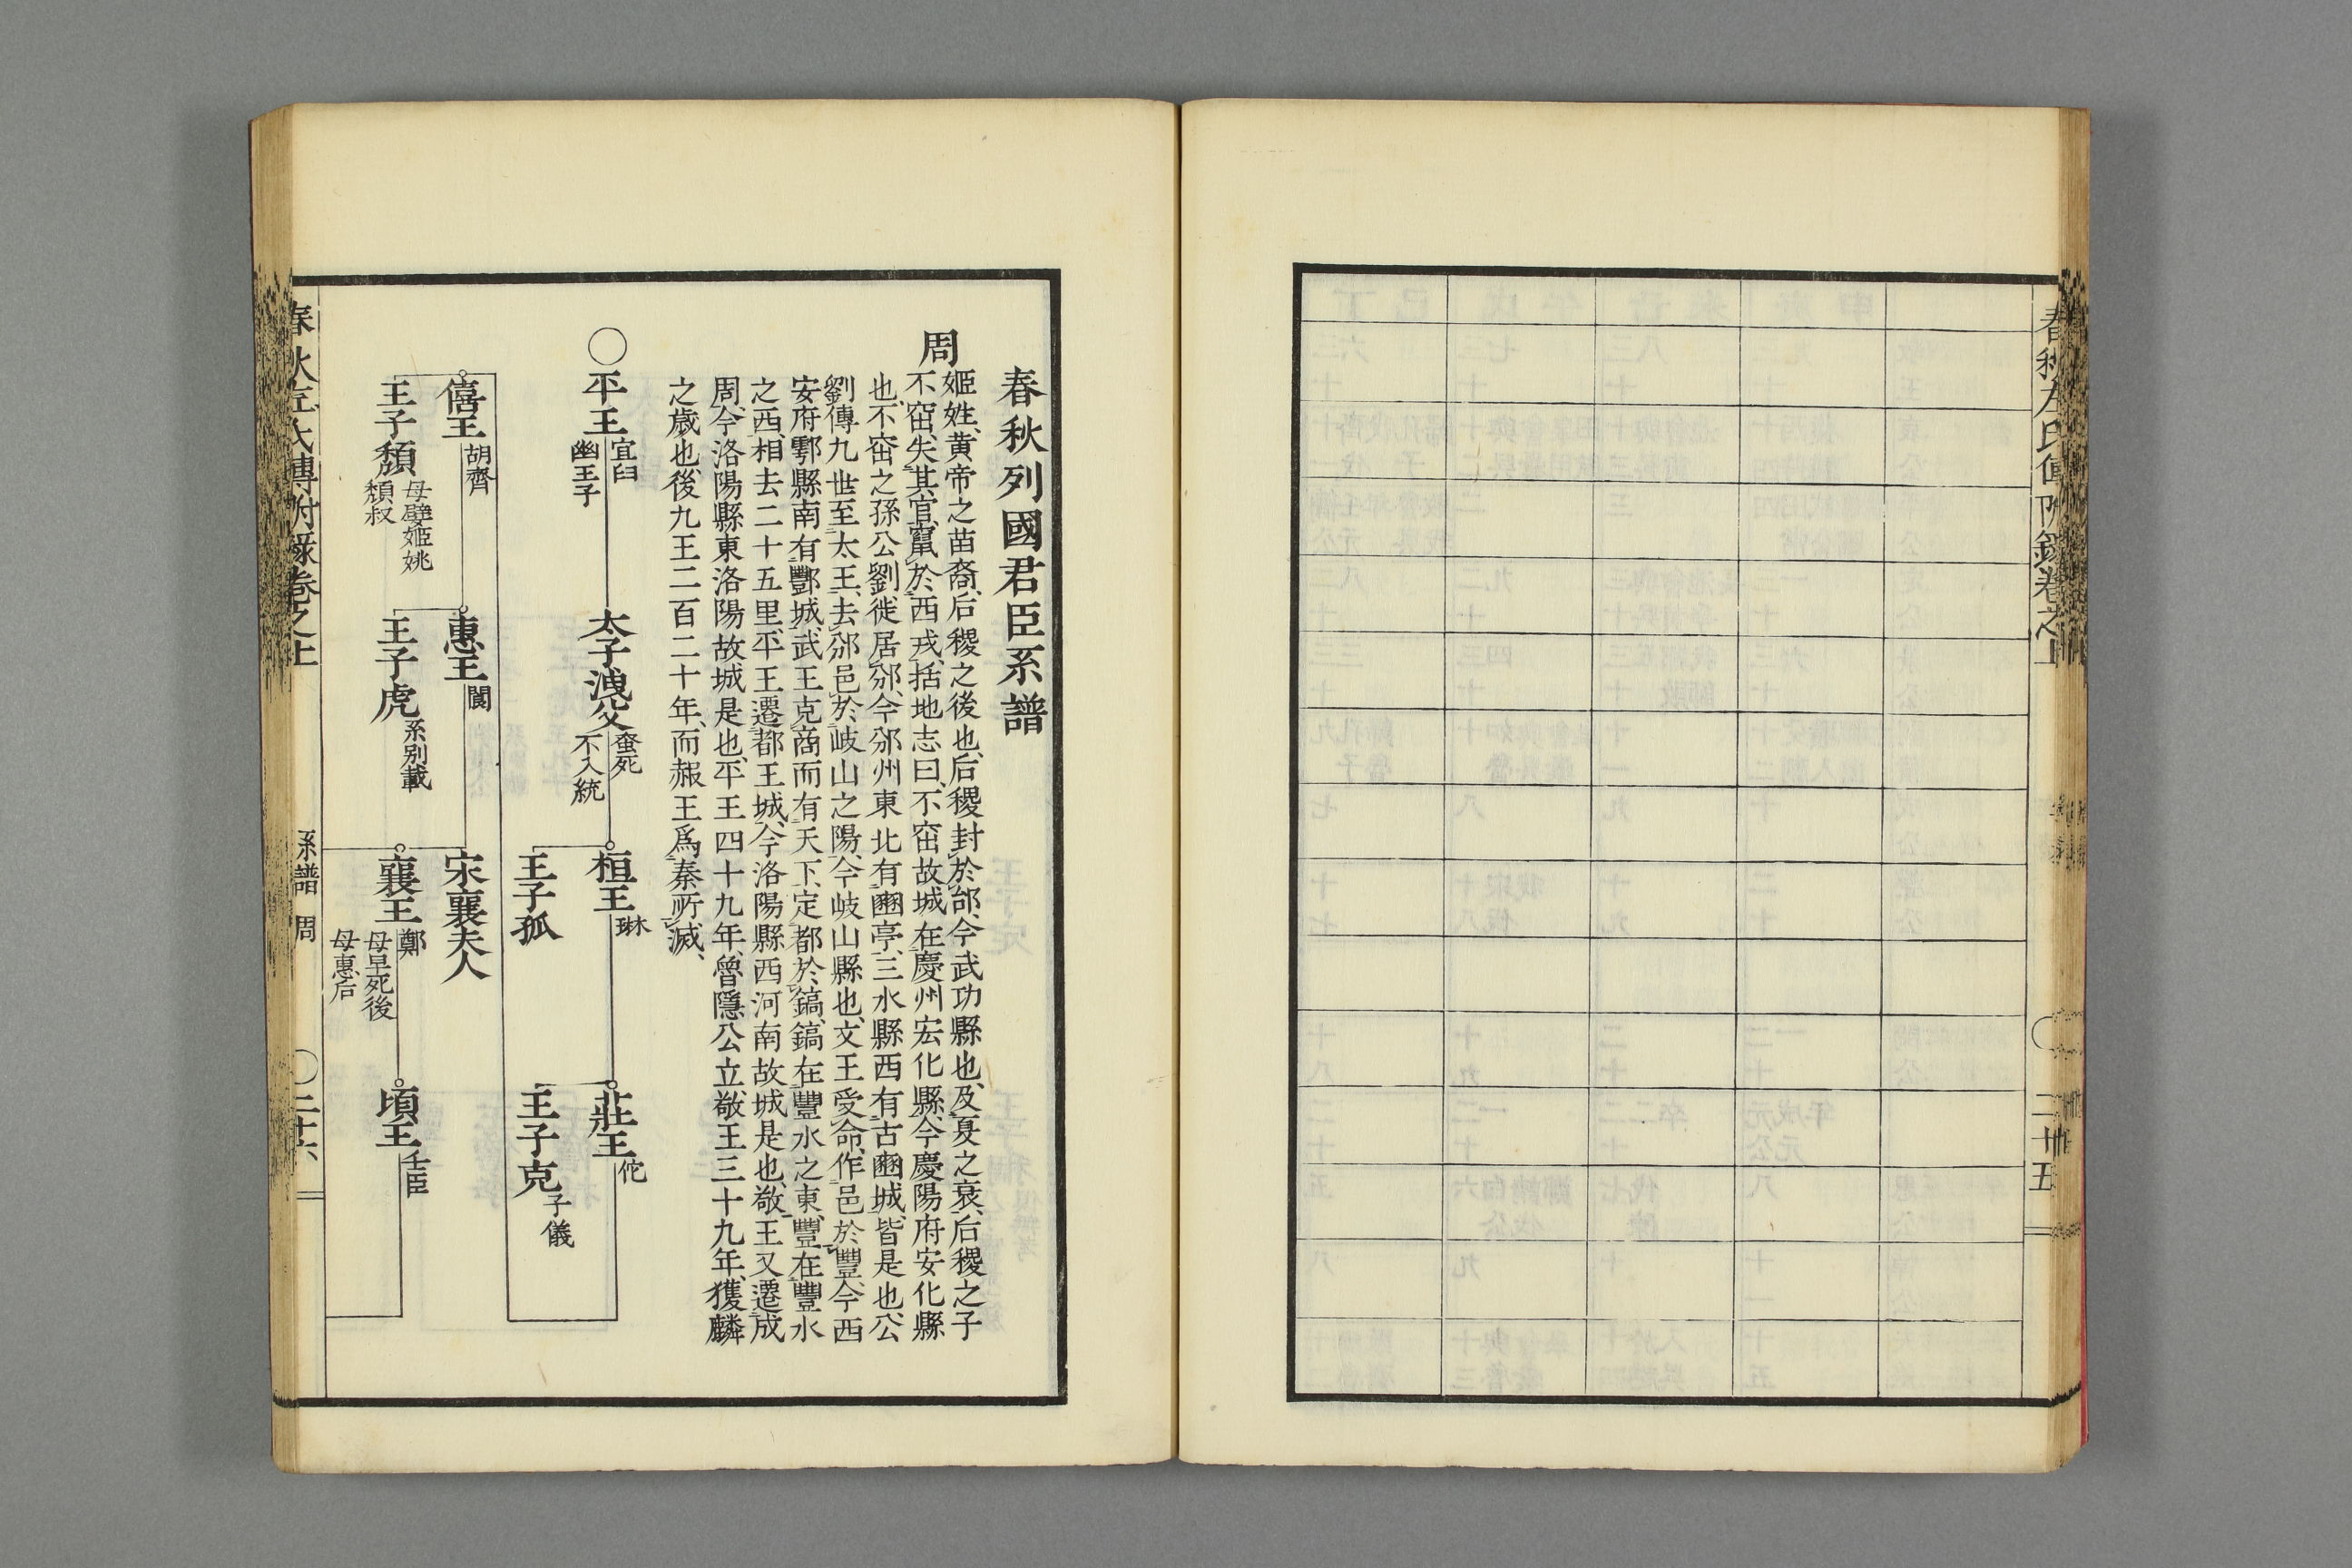 春秋左氏傳附錄卷之上
二十五
春秋列國君臣系譜
周
姬姓、黃帝之苗裔、后稷之後也、后稷封於邰、今武功縣也、及夏之衰、后稷之子
不窋、失其官、竄於西戎、括地志曰、不窋故城、在慶州宏化縣、今慶陽府安化縣
也、不窋之孫公劉、徙居邠、今邠州東北有豳亭、三水縣西有古豳城、皆是也、公
劉傳九世至太王、去邠邑於岐山之陽、今岐山縣也、文王受命、作邑於豐、今西
安府鄠縣南有酆城、武王克商而有天下、定都於鎬、鎬在豐水之東、豐在豐水
之西、相去二十五里、平王遷都王城、今洛陽縣西河南故城是也、敬王又遷成
周、今洛陽縣東洛陽故城是也、平王四十九年、魯隱公立、敬王三十九年、獲麟
之歲也、後九王二百二十年、而赧王爲秦所滅、
〇平王
宜臼
幽王子
太子洩父
蚤死
不入統
桓王
琳
莊王
佗
王子孤
王子克
子儀
僖王
胡齊
惠王
閬
宋襄夫人
王子頹
母嬖姬姚
頹叔
王子虎
系別載
襄王
鄭
母早死後
母惠后
頃王
壬臣
春秋左氏傳附錄卷之上
系譜 周
〇二十六